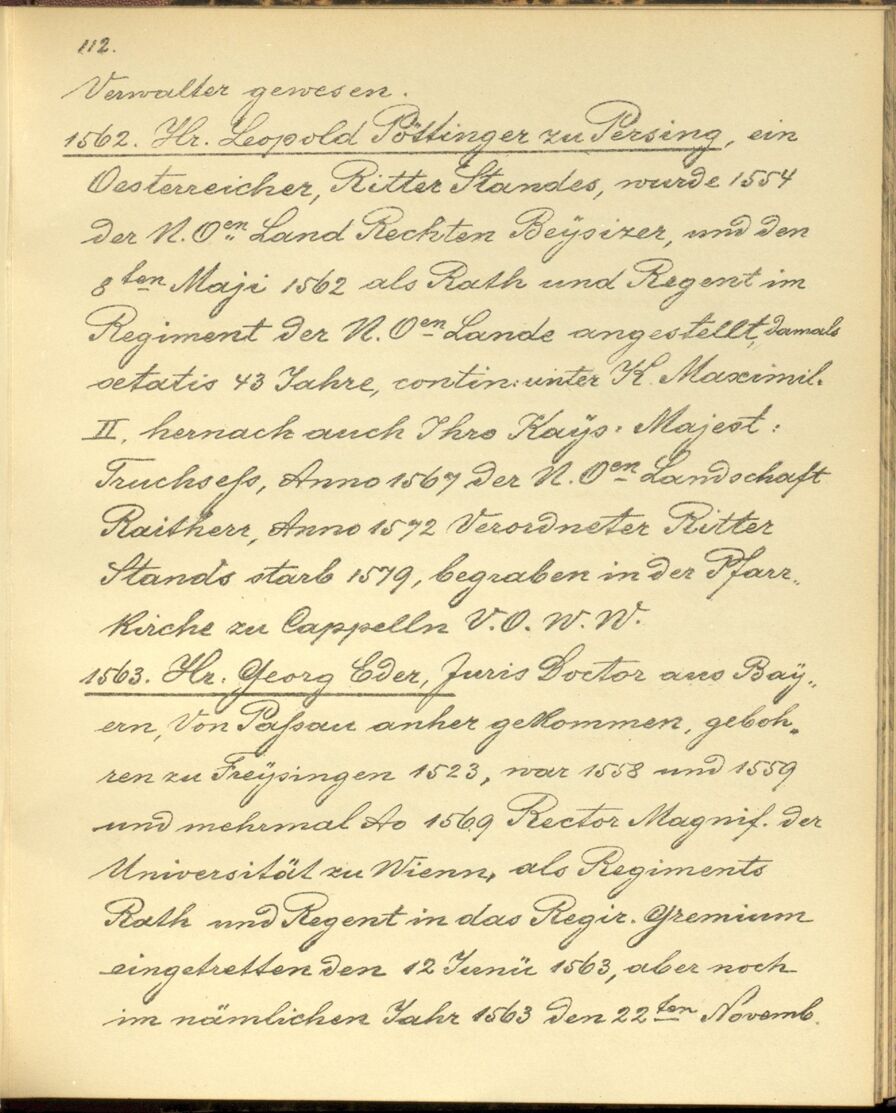 112.
Verwalter gewesen.
1562. Hr. Leopold Pöttinger zu Persing, ein
Oesterreicher, Ritter Standes, wurde 1554
der N. Oen Land Rechten Beÿsizer, und den
8ten Maji 1562 als Rath und Regent im
Regiment der N. Oen Lande angestellt, damals
aetatis 43 Jahre, contin: unter K. Maximil.
II. hernach auch Ihro Kaÿs: Majest:
Truchseſs, Anno 1567 der N. Oen Landschaft
Raitherr, Anno 1572 Verordneter Ritter
Stands starb 1579, begraben in der Pfarr„
Kirche zu Cappelln V. O. W. W.
1563. Hr. Georg Eder, Juris Doctor aus Baÿ„
ern, Von Paſsau anher gekommen, geboh„
ren zu Freÿsingen 1523, war 1558 und 1559
und mehrmal Ao 1569 Rector Magnif. der
Universität zu Wienn, als Regiments
Rath und Regent in das Regir. Gremium
eingetretten den 12 Junii 1563, aber noch
im nämlichen Jahr 1563 den 22ten Novemb.